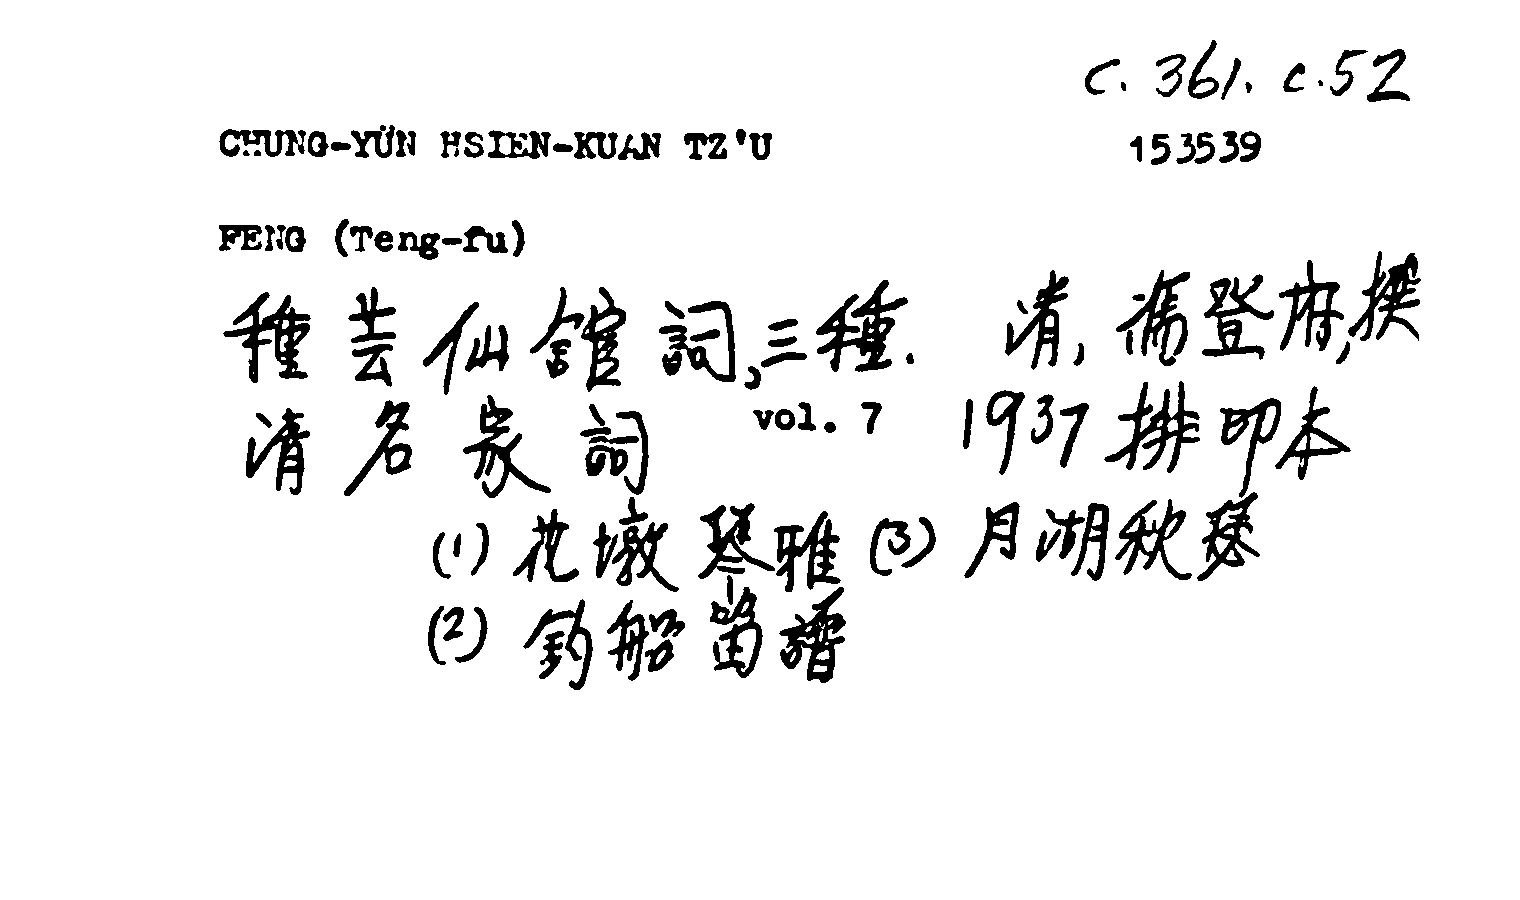 c. 361. c.52
CHUNG-YÜN HSIEN-KUAN TZ'U 153539
FENG (Teng-fu)
種芸仙舘詞,三種. 清,馮登府,撰
清名家詞 vol. 7 1937排印本
(1) 花墩琴雅 (3) 月湖秋瑟
(2) 釣船笛譜